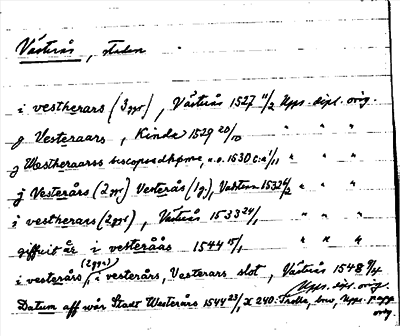 Västerås, staden
i vestherars (3 ggr), Västerås 1527 11/2 Upps. dipl. orig.
y Vesteraars, Kinda 1529 20/10 " " "
y Westheraarss biscopsdhøme, 1530 1/11 " " "
j Vesterårs (2 ggr) Vesterås (1 g), 1532 4/2 " " "
i vestherars (2 ggr), Västerås 1533 24/1 " " "
giffuit är i vesteråås 1544 15/1 " " "
i vesterårs, (2 ggr) i vesterårs, Vesterars slot, Västerås 1548 9/4 Upps. dipl. orig.
Datum aff wår Stadt Westerårs 1544 23/1, x 240: Trolle, brev, Upps. orig.